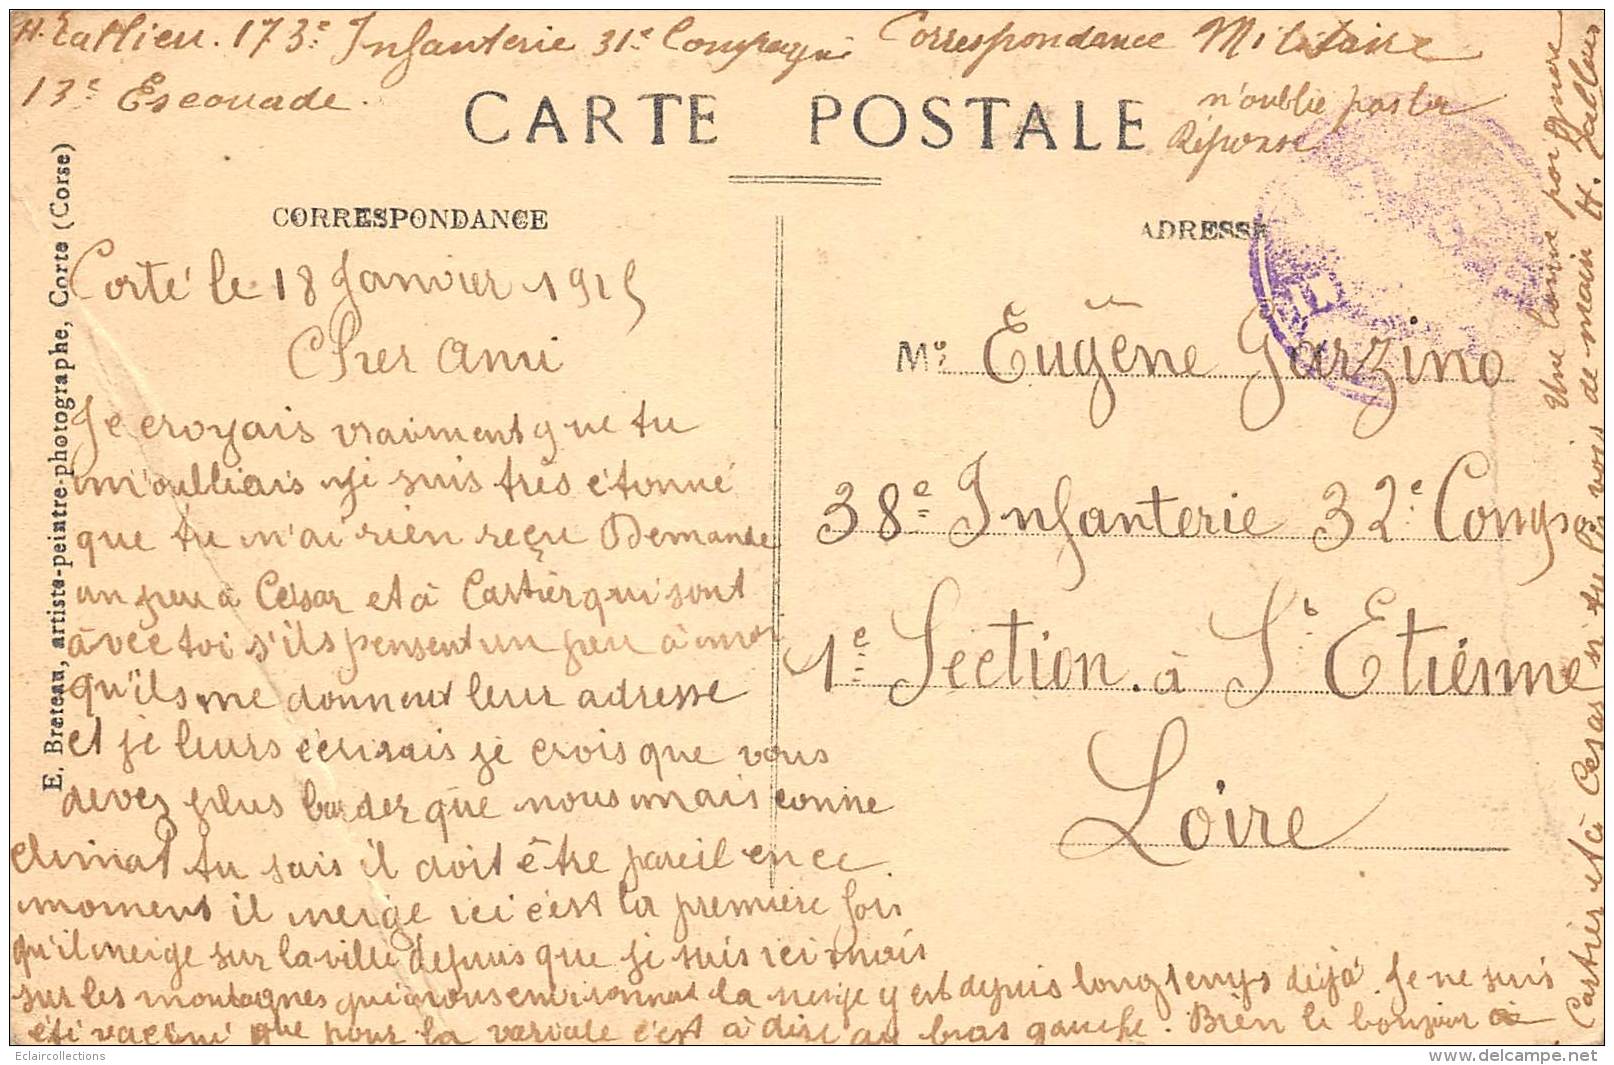 H. Lattieu. 173e Infanterie 31e Compagnie
13e Escouade.
Correspondance Militaire
n'oublie pas la
Réponse
CARTE POSTALE
CORRESPONDANCE
ADRESSE
E. Breteau, artiste-peintre-photographe, Corte (Corse)
Corté le 18 Janvier 1915
Cher Ami
Je croyais vraiment que tu
m'oubliais je suis très étonné
que tu n'ai rien reçu Demande
un peu a César et à Cartier qui sont
avec toi s'ils pensent un peu à moi
qu'ils me donnent leur adresse
et je leurs écrirais je crois que vous
devez plus barder que nous mais comme
climat tu sais il doit être pareil en ce
moment il neige ici c'est la première fois
qu'il neige sur la ville depuis que je suis ici mais
sur les montagnes qui nous environnent la neige y est depuis longtemps déjà. Je ne suis
été vacciné que pour la variole c'est à dire au bras gauche. Bien le bonjour à
Cartier et à César si tu les vois de main H.
Une bonne poignée
Mr Eugène Garzino
38e Infanterie 32e Comp
1e Section. à St Etiénne
Loire
Eclaircollections
www.delcampe.net